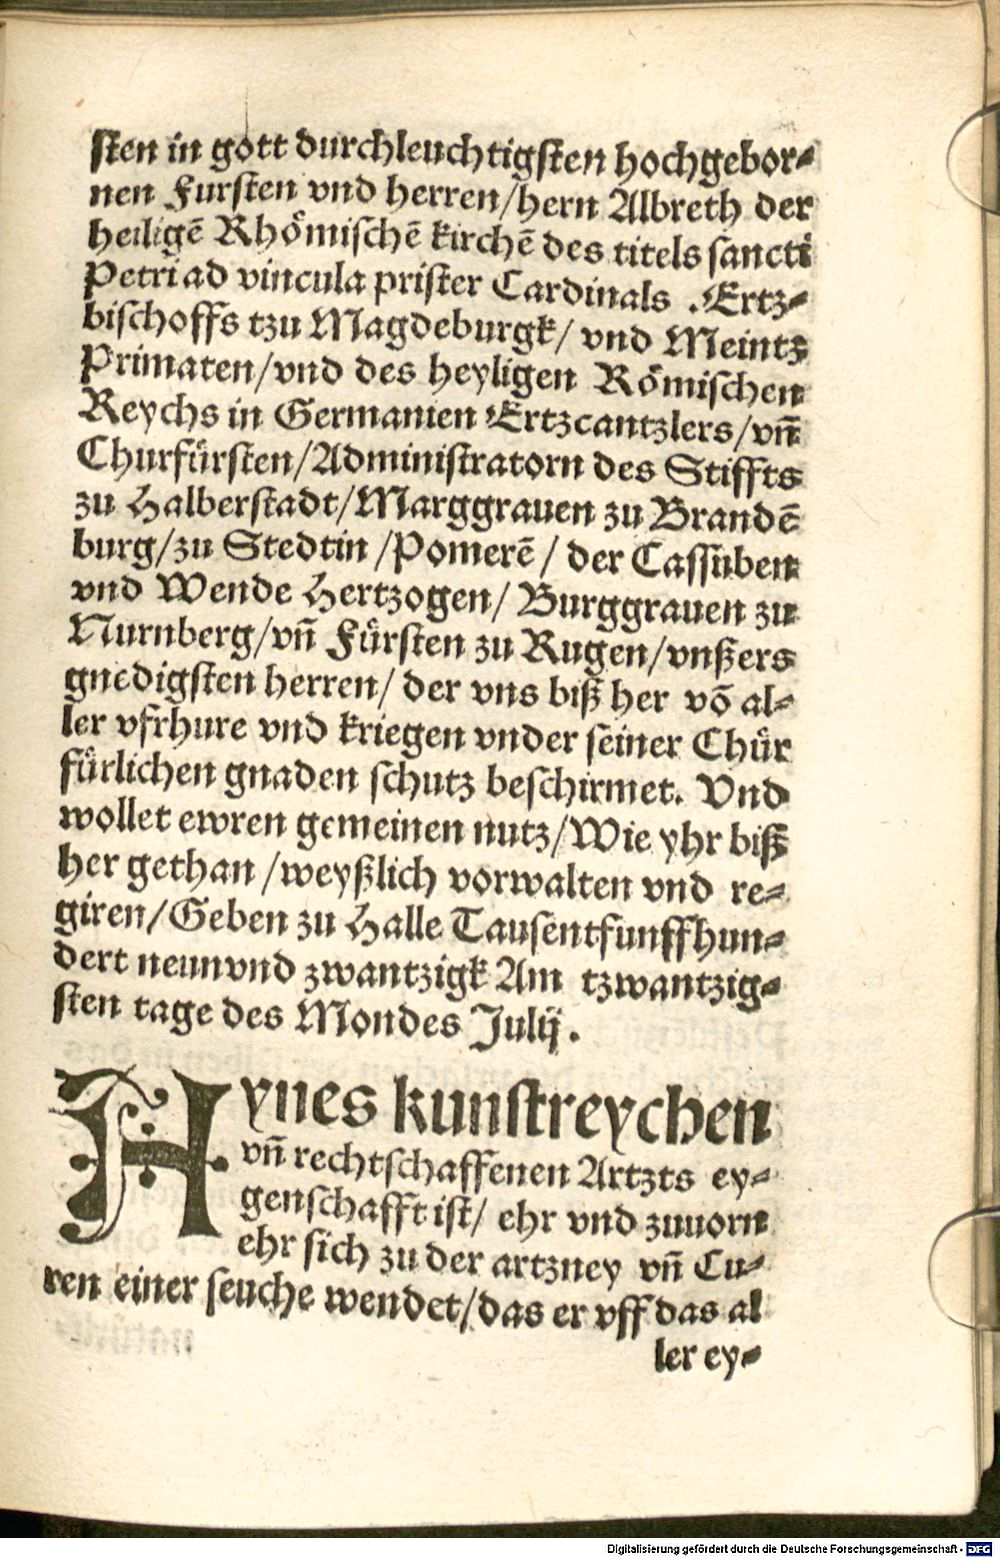 sten in gott durchleuchtigsten hochgebor⸗
nen Fursten vnd herren/hern Albreth der
heiligẽ Rhoͤmischẽ kirchẽ des titels sancti
Petri ad vincula prister Cardinals . Ertz⸗
bischoffs tzu Magdeburgk/ vnd Meintz
Primaten/vnd des heyligen Roͤmischen
Reychs in Germanien Ertzcantzlers/vñ
Churfuͤrsten/Administratorn des Stiffts
zu Halberstadt/Marggrauen zu Brandẽ
burg/zu Stedtin /Pomerẽ/ der Cassuben
vnd Wende Hertzogen/ Burggrauen zu
Nurnberg/vñ Fuͤrsten zu Rugen/vnßers
gnedigsten herren/ der vns biß her võ al⸗
ler vfrhure vnd kriegen vnder seiner Chuͤr
fuͤrlichen gnaden schutz beschirmet. Vnd
wollet ewren gemeinen nutz/Wie yhr biß
her gethan /weyßlich vorwalten vnd re⸗
giren/Geben zu Halle Tausentfunffhun⸗
dert neunvnd zwantzigk Am tzwantzig⸗
sten tage des Mondes Julij.
HYnes kunstreychen
vñ rechtschaffenen Artzts ey⸗
genschafft ist/ ehr vnd zuuorn
ehr sich zu der artzney vñ Cu⸗
ren einer seuche wendet/das er vff das al
ler ey⸗
Digitalisierung gefördert durch die Deutsche Forschungsgemeinschaft - DFG